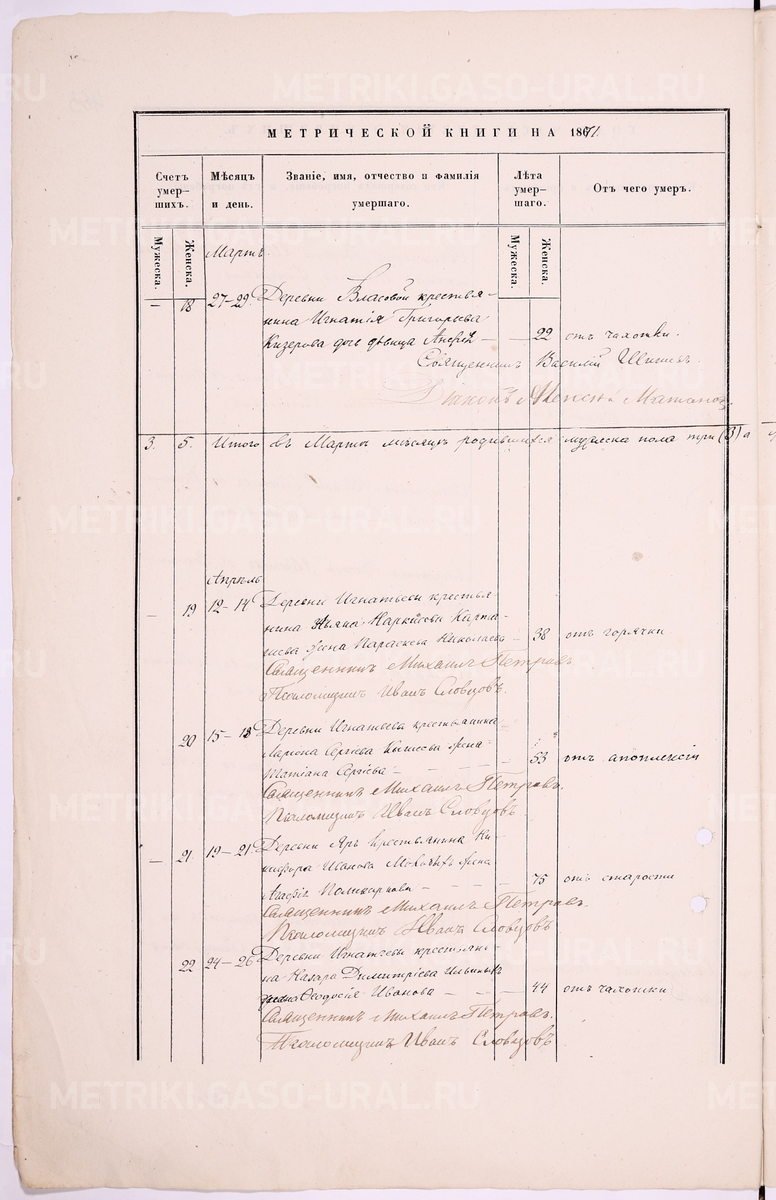 МЕТРИЧЕСКОЙ КНИГИ НА 1871
Счетъ умер-шихъ.
Мѣсяцъ и день.
Званіе, имя, отчество и фамилія умершаго.
Лѣта умер-шаго.
Отъ чего умеръ.
Мужеска.
Женска.
Мужеска.
Женска.
Мартъ.
— 18 27–29. Деревни Власовой крестья-
нина Игнатія Григорьева
Кизерова дочь дѣвица — — 22 отъ чахотки.
Священникъ Василій
Діаконъ
3. 5. Итого въ Мартѣ мѣсяцѣ родившихся мужеска пола три (3) а
Апрѣль
— 19 12–14 Деревни Игнатьевы крестья
нина жена Параскева Николаева — 38 отъ горячки
Священникъ Михаилъ Петровъ
Псаломщикъ Иванъ Словцовъ.
20 15–18 Деревни Игнатьевы крестьянина
Сергѣева жена
Татіана Сергѣева — — — — 53 отъ апоплексіи
Священникъ Михаилъ Петровъ.
Псаломщикъ Иванъ Словцовъ
— 21 19–21. Деревни Яръ крестьянина Ни-
кифора Иванова жена
Агафія Поликарпова — — — — 75 отъ старости
Священникъ Михаилъ Петровъ.
Псаломщикъ Иванъ Словцовъ
22 24–26 Деревни Игнатьевы крестьяни
на Назара Димитріева
жена Ѳеодосія Иванова — — — 44 отъ чахотки
Священникъ Михаилъ Петровъ.
Псаломщикъ Иванъ Словцовъ
METRIKI.GASO-URAL.RU